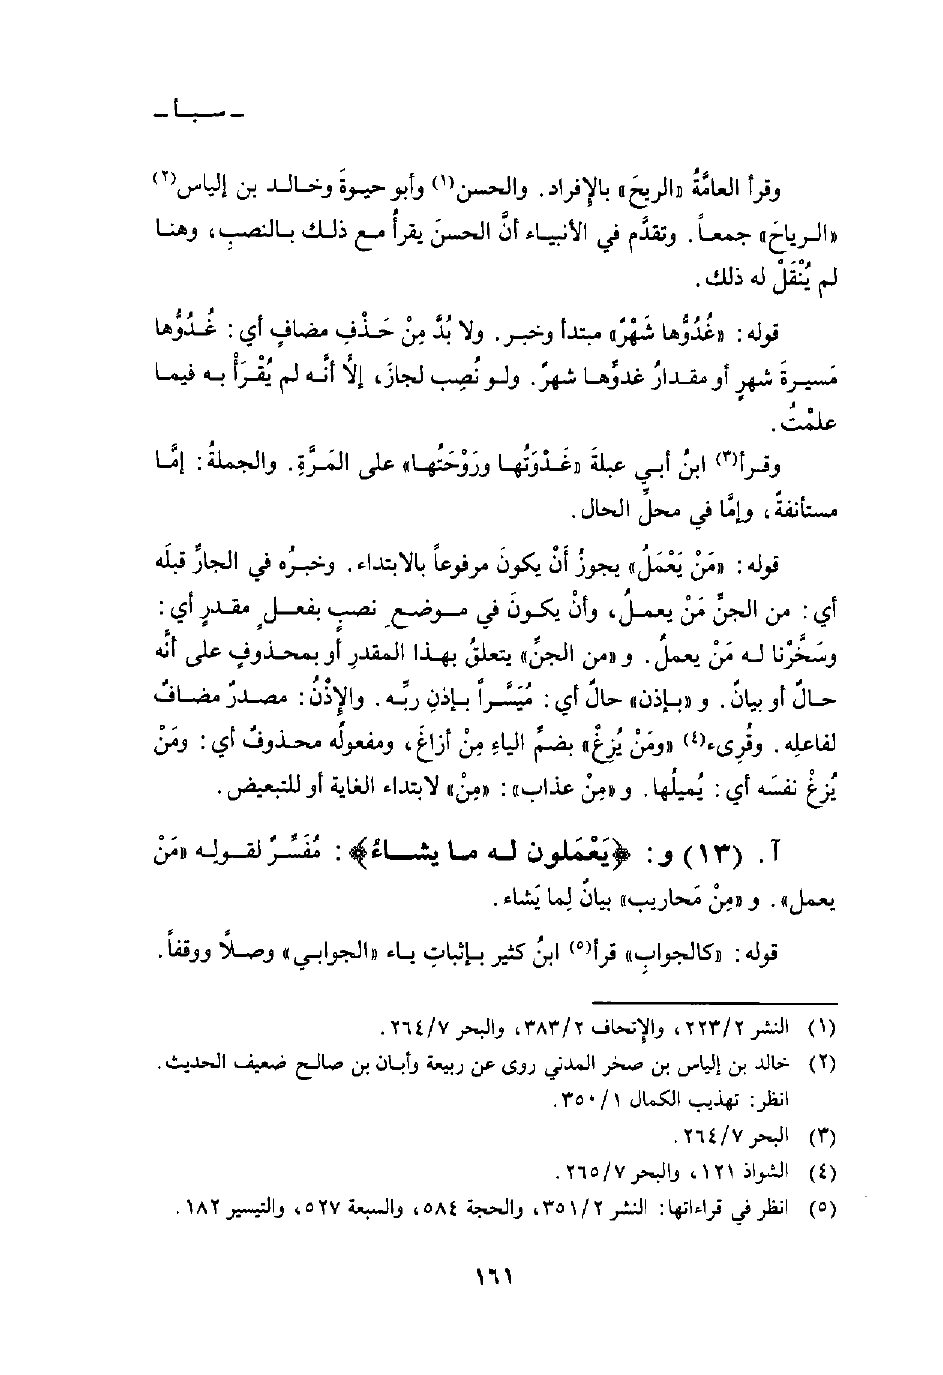 ـ سبأ ـ
وقرأ العامَّةُ «الريحَ» بالإِفراد. والحسن(١) وأبو حيوةَ وخالد بن إلياس(٢)
«الرياحَ» جمعاً. وتقدَّم في الأنبياء أنَّ الحسنَ يقرأُ مع ذلك بالنصبِ، وهنا
لم يُنْقَلْ له ذلك.
قوله: «غُدُوُّها شَهْرٌ» مبتدأ وخبر. ولا بُدَّ مِنْ حَذْفِ مضافٍ أي: غُدُوُّها
مَسيرةَ شهرٍ أو مقدارُ غدوِّها شهرٌ. ولو نُصِب لجازَ، إلَّا أنَّه لم يُقْرَأْ به فيما
علمْتُ.
وقرأ(٣) ابنُ أبي عبلةَ «غَدْوَتُها ورَوْحَتُها» على المَرَّةِ. والجملةُ: إمَّا
مستأنفةٌ، وإمَّا في محلِّ الحال.
قوله: «مَنْ يَعْمَلُ» يجوزُ أَنْ يكونَ مرفوعاً بالابتداء. وخبرُه في الجارِّ قبلَه
أي: من الجنِّ مَنْ يعملُ، وأنْ يكونَ في موضعِ نصبٍ بفعلٍ مقدرٍ أي:
وسَخَّرْنا له مَنْ يعملُ. و «من الجنِّ» يتعلقُ بهذا المقدرِ أو بمحذوفٍ على أنَّه
حالٌ أو بيانٌ. و «بإذن» حالٌ أي: مُيَسَّراً بإذنِ ربِّه. والإِذْنُ: مصدرٌ مضافٌ
لفاعلِه. وقُرِىء(٤) «ومَنْ يُزِغْ» بضمِّ الياءِ مِنْ أزاغَ، ومفعولُه محذوفٌ أي: ومَنْ
يُزِغْ نفسَه أي: يُميلُها. و «مِنْ عذاب»: «مِنْ» لابتداء الغاية أو للتبعيض.
آ. (١٣) و: ﴿يَعْمَلون له ما يشاءُ﴾: مُفَسِّرٌ لقوله «مَنْ
يعمل». و «مِنْ مَحاريب» بيانٌ لِما يَشاء.
قوله: «كالجوابِ» قرأ(٥) ابنُ كثير بإثباتِ ياء «الجوابي» وصلاً ووقفاً.
(١) النشر ٢٢٣/٢، والإتحاف ٣٨٣/٢، والبحر ٢٦٤/٧.
(٢) خالد بن إلياس بن صخر المدني روى عن ربيعة وأبان بن صالح ضعيف الحديث.
انظر: تهذيب الكمال ٣٥٠/١.
(٣) البحر ٢٦٤/٧.
(٤) الشواذ ١٢١، والبحر ٢٦٥/٧.
(٥) انظر في قراءاتها: النشر ٣٥١/٢، والحجة ٥٨٤، والسبعة ٥٢٧، والتيسير ١٨٢.
١٦١